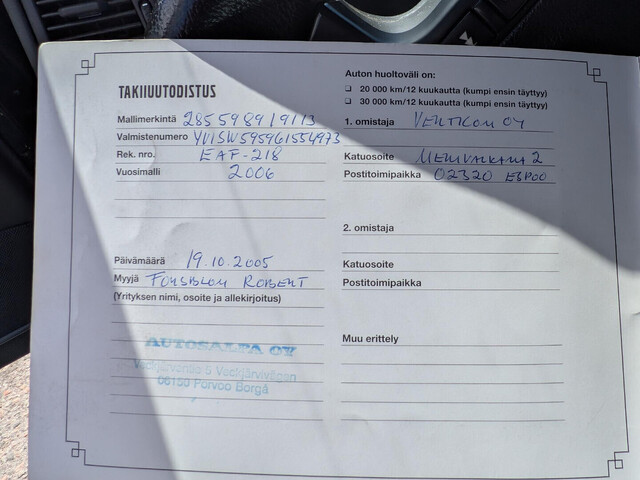 TAKUUTODISTUS
Mallimerkintä 2855989/9113
Valmistenumero YV1SW595961554973
Rek. nro. EAF-218
Vuosimalli 2006
Päivämäärä 19.10.2005
Myyjä FORSBLOM ROBERT
(Yrityksen nimi, osoite ja allekirjoitus)
AUTOSALPA OY
06150 Porvoo Borgå
Auton huoltoväli on:
20 000 km/12 kuukautta (kumpi ensin täyttyy)
30 000 km/12 kuukautta (kumpi ensin täyttyy)
1. omistaja VEHTKOM OY
Katuosoite MERIVALKAMA 2
Postitoimipaikka 02320 ESPOO
2. omistaja
Katuosoite
Postitoimipaikka
Muu erittely